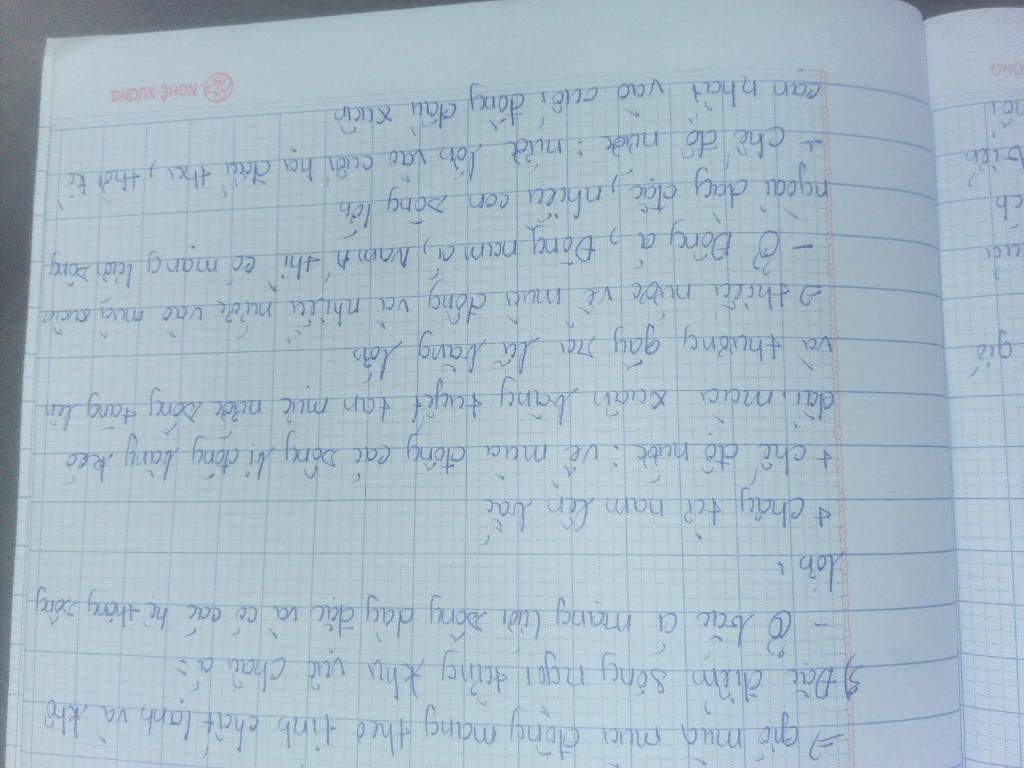 => gió mùa mùa đông mang theo tính chất lạnh và khô
3) Đặc điểm sông ngòi từng khu vực Châu á:
- Ở bắc á mạng lưới sông dày đặc và có các hệ thống sông
lớn.
+ chảy từ nam lên bắc
+ chế độ nước: về mùa đông các sông bị đóng băng kéo
dài mùa xuân băng tuyết tan mức nước sông tăng lên
và thường gây ra lũ băng lớn
=> thiếu nước về mùa đông và nhiều nước vào mùa xuân
- Ở Đông á, Đông nam á, Nam Á thì có mạng lưới sông
ngòi dày đặc, nhiều con sông lớn
+ chế độ nước: nước lớn vào cuối hạ đầu thu, thời kì
cạn nhất vào cuối đông đầu xuân
NGHỆ XƯƠNG
ƠNG
gió